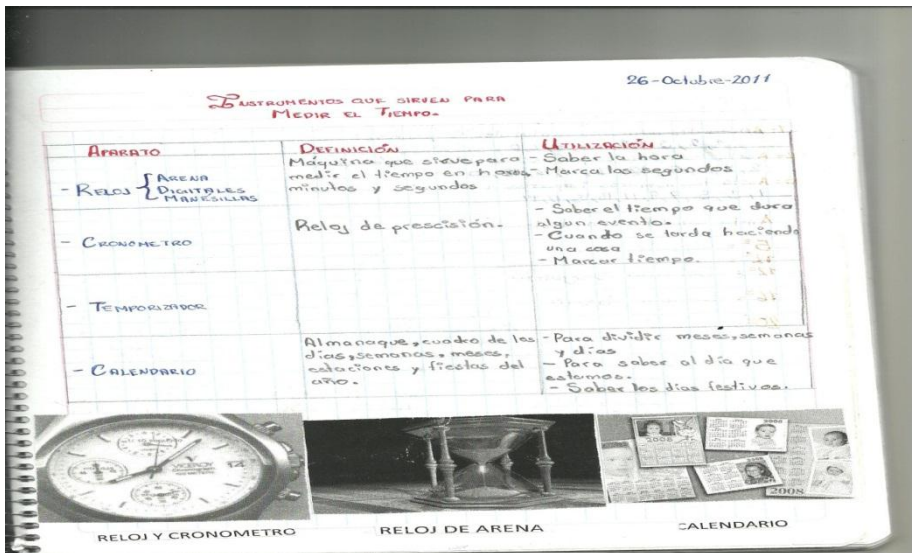 26-Octubre-2011
INSTRUMENTOS QUE SIRVEN PARA
MEDIR EL TIEMPO.
APARATO
- RELOJ { ARENA
DIGITALES
MANESILLAS
DEFINICIÓN
Máquina que sirve para
medir el tiempo en horas
minutos y segundos
UTILIZACIÓN
- Saber la hora
- Marca los segundos
- CRONOMETRO
Reloj de prescisión.
- Saber el tiempo que dura
algun evento.
- Cuando se tarda haciendo
una cosa
- Marcar tiempo.
- TEMPORIZADOR
- CALENDARIO
Almanaque, cuadro de los
días, semanas, meses,
estaciones y fiestas del
año.
- Para dividir meses, semanas
y días
- Para saber al día que
estamos.
- Saber los días festivos.
VICEROY
2008
2008
2008
RELOJ Y CRONOMETRO
RELOJ DE ARENA
CALENDARIO